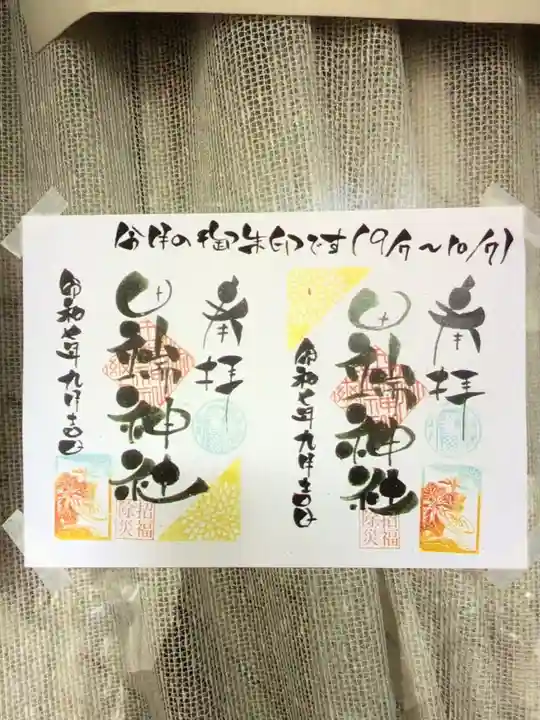 今月の御朱印です(9/7〜10/7)
奉拝
神社
招福
除災
令和七年九月吉日
奉拝
神社
招福
除災
令和七年九月吉日